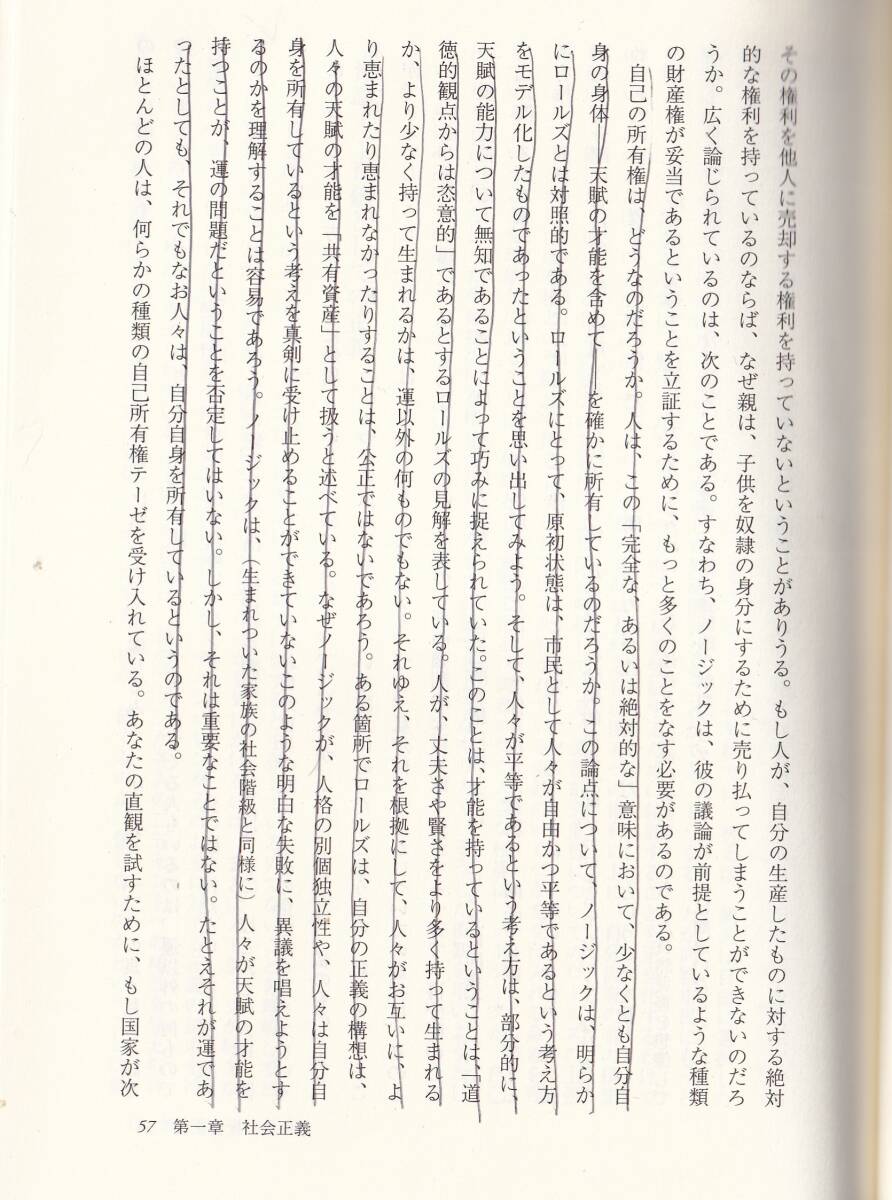 その権利を他人に売却する権利を持っていないということがありうる。もし人が、自分の生産したものに対する絶対
的な権利を持っているのならば、なぜ親は、子供を奴隷の身分にするために売り払ってしまうことができないのだろ
うか。広く論じられているのは、次のことである。すなわち、ノージックは、彼の議論が前提としているような種類
の財産権が妥当であるということを立証するために、もっと多くのことをなす必要があるのである。
自己の所有権は、どうなのだろうか。人は、この「完全な、あるいは絶対的な」意味において、少なくとも自分自
身の身体――天賦の才能を含めて――を確かに所有しているのだろうか。この論点について、ノージックは、明らか
にロールズとは対照的である。ロールズにとって、原初状態は、市民として人々が自由かつ平等であるという考え方
をモデル化したものであったということを思い出してみよう。そして、人々が平等であるという考え方は、部分的に、
天賦の能力について無知であることによって巧みに捉えられていた。このことは、才能を持っているということは、「道
徳的観点からは恣意的」であるとするロールズの見解を表している。人が、丈夫さや賢さをより多く持って生まれる
か、より少なく持って生まれるかは、運以外の何ものでもない。それゆえ、それを根拠にして、人々がお互いに、よ
り恵まれたり恵まれなかったりすることは、公正ではないであろう。ある箇所でロールズは、自分の正義の構想は、
人々の天賦の才能を「共有資産」として扱うと述べている。なぜノージックが、人格の別個独立性や、人々は自分自
身を所有しているという考えを真剣に受け止めることができていないこのような明白な失敗に、異議を唱えようとす
るのかを理解することは容易であろう。ノージックは、（生まれついた家族の社会階級と同様に）人々が天賦の才能を
持つことが、運の問題だということを否定してはいない。しかし、それは重要なことではない。たとえそれが運であ
ったとしても、それでもなお人々は、自分自身を所有しているというのである。
ほとんどの人は、何らかの種類の自己所有権テーゼを受け入れている。あなたの直観を試すために、もし国家が次
57 第一章 社会正義